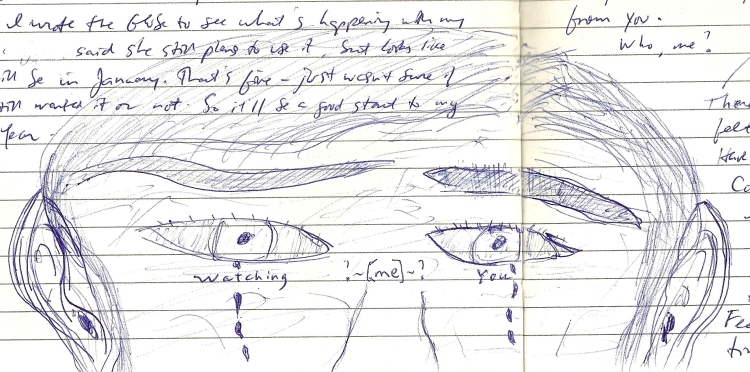 I wrote the to see what's happening with my
said she still plans to use it. But looks like
be in January. That's fine - just wasn't sure if
wanted it or not. So it'll be a good start to my
Year.
from you.
Who, me?
watching ?~[me]~? You